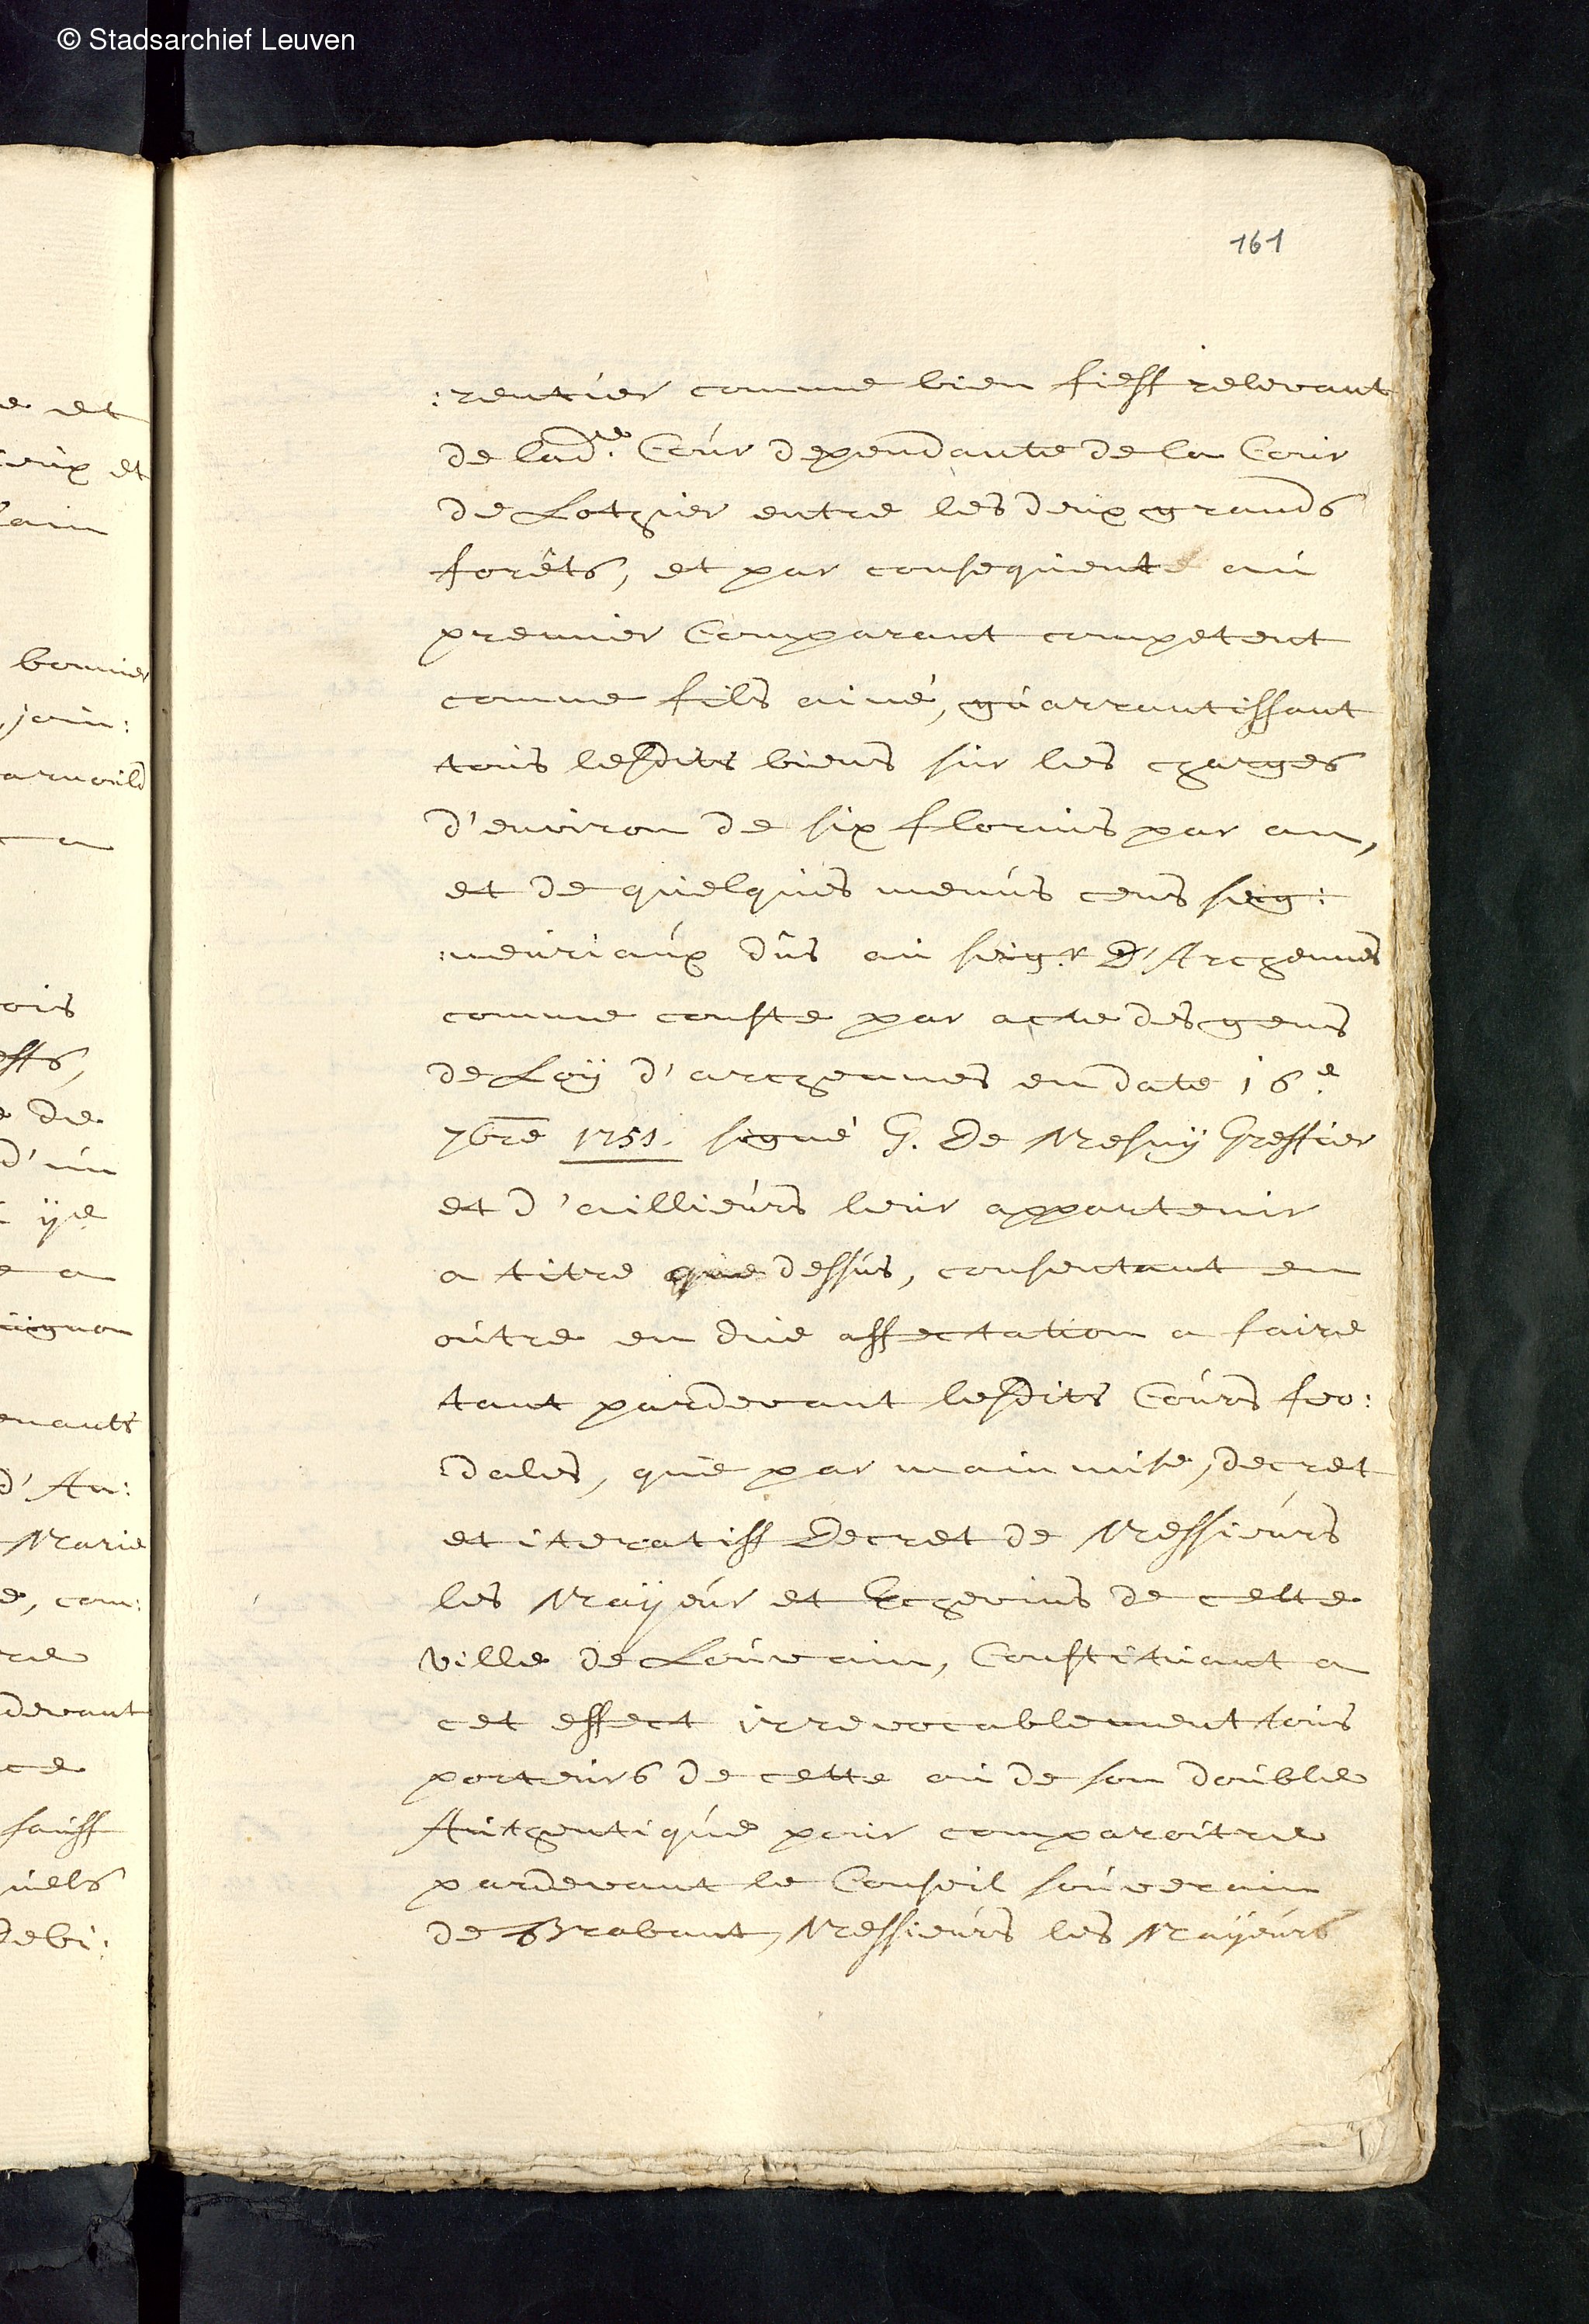 © Stadsarchief Leuven
161
:rentier comme bien fieff relevant
de lad:ee Coúr dependante de la Cour
de Lothier entre les deúx grands
forêts, et par consequente aú
premier Comparant competent
comme fils ainé, gúarrantissant
toús lesdits biens súr les charges
d'environ de six florins par an,
et de qúelqúes menús cens seig:
:neúriaúx dûs aú seig.r D'Archennes
comme conste par acte des gens
de Loÿ d'archennes en date 16.e
7bre 1751. signé G. De Mesnÿ Greffier
et d'aillieúrs leúr appartenir
a titre que dessús, consentant en
oútre en dúe affectation a faire
tant pardevant lesdits Coúrs feo:
:dales, qúe par main mise, decret
et iteratiff Decret de Messieúrs
les Maÿeúr et Echevins de cette
ville de Loúvain, Constitúant a
cet effect irrevocablement toús
porteúrs de cette oú de son doúble
Aúthentiqúe poúr comparoitre
pardevant le Conseil soúverain
de Brabant, Messieúrs les Maÿeúrs
e et
ieúx et
bonnier
join:
a
ois
effs,
e de
d'ún
ÿe
e a
enants
d'An:
Marie
e, com:
devant
ce
saúff
úels
debi: